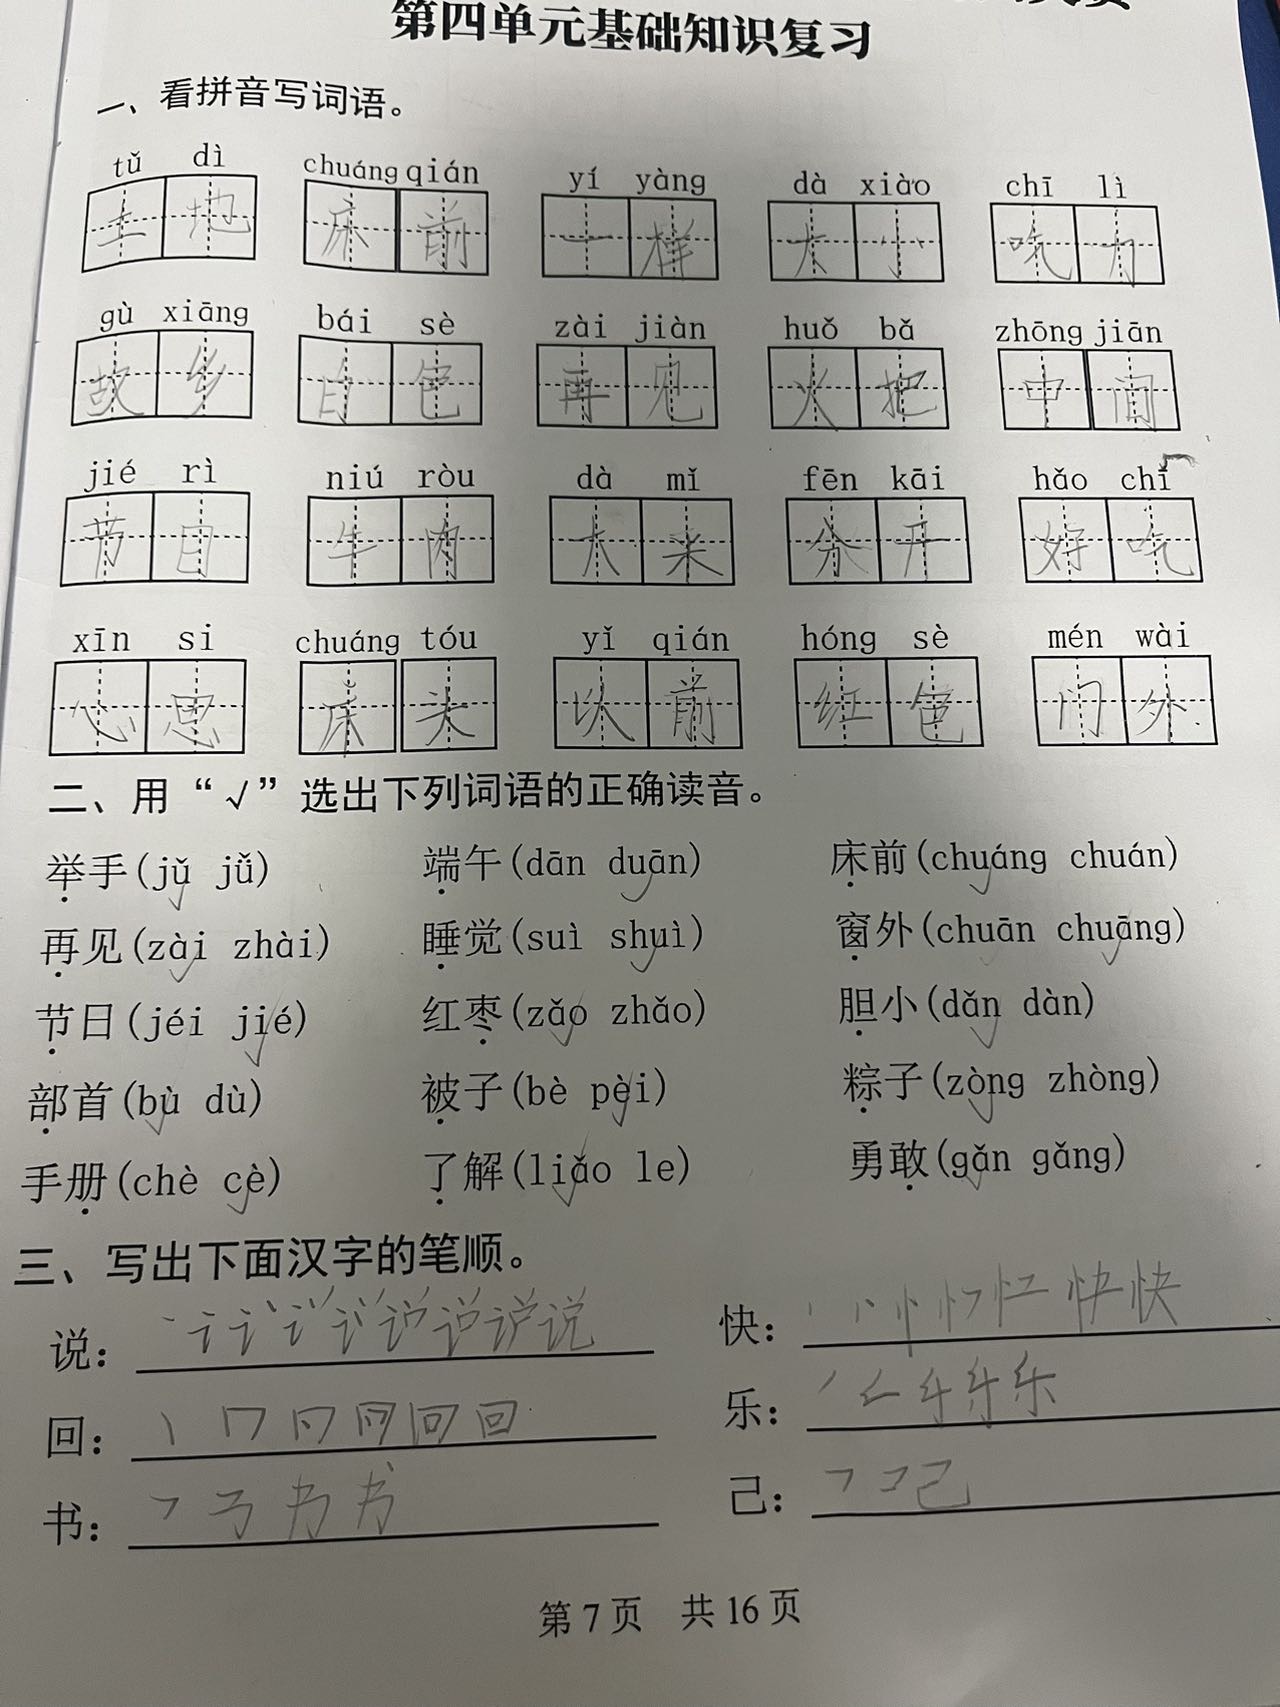 第四单元基础知识复习
一、看拼音写词语。
tǔ dì chuáng qián yí yàng dà xiǎo chī lì
土地 床前 一样 大小 吃力
gù xiāng bái sè zài jiàn huǒ bǎ zhōng jiān
故乡 白色 再见 火把 中间
jié rì niú ròu dà mǐ fēn kāi hǎo chī
节日 牛肉 大米 分开 好吃
xīn si chuáng tóu yǐ qián hóng sè mén wài
心思 床头 以前 红色 门外
二、用“√”选出下列词语的正确读音。
举手(jǔ jǚ) 端午(dān duān) 床前(chuáng chuán)
再见(zài zhài) 睡觉(suì shuì) 窗外(chuān chuāng)
节日(jéi jié) 红枣(zǎo zhǎo) 胆小(dǎn dàn)
部首(bù dù) 被子(bè pèi) 粽子(zòng zhòng)
手册(chè cè) 了解(liǎo le) 勇敢(gǎn gǎng)
三、写出下面汉字的笔顺。
说： 说 快： 快快
回： 回 乐： 乐
书： 书 己： 己
第 7 页 共 16 页